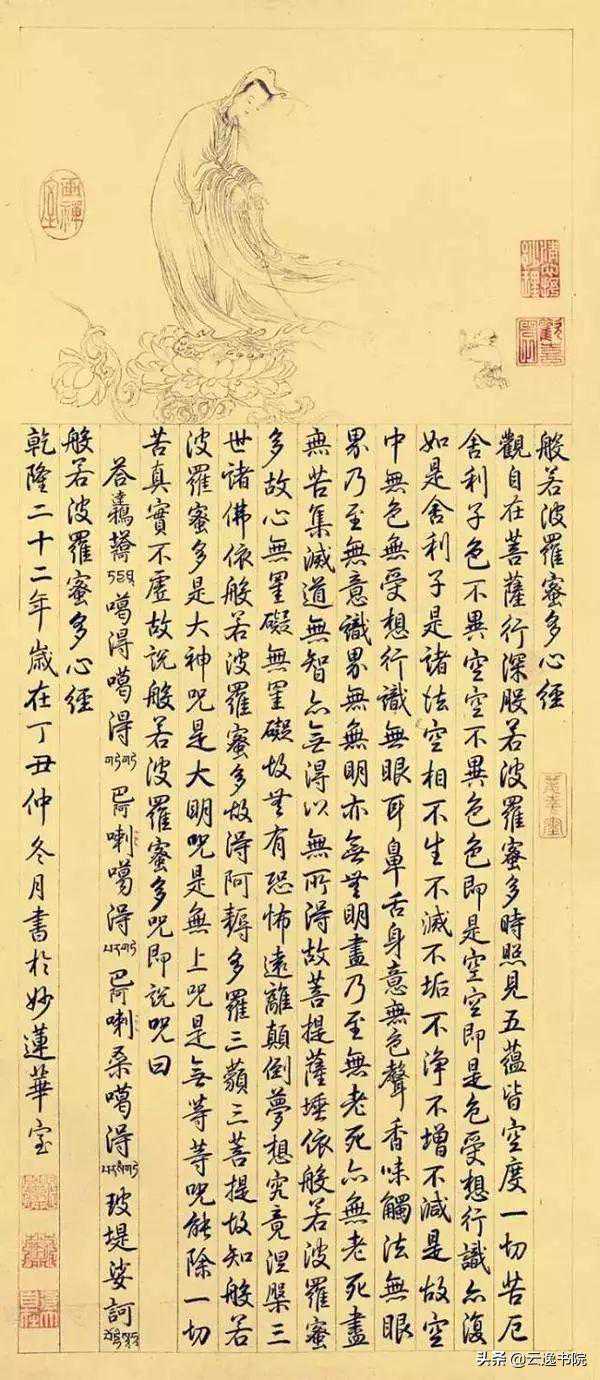 畫禪室
般若波羅蜜多心經
觀自在菩薩行深般若波羅蜜多時照見五蘊皆空度一切苦厄
舍利子色不異空空不異色色即是空空即是色受想行識亦復
如是舍利子是諸法空相不生不滅不垢不淨不增不減是故空
中無色無受想行識無眼耳鼻舌身意無色聲香味觸法無眼
界乃至無意識界無無明亦無無明盡乃至無老死亦無老死盡
無苦集滅道無智亦無得以無所得故菩提薩埵依般若波羅蜜
多故心無罣礙無罣礙故無有恐怖遠離顛倒夢想究竟涅槃三
世諸佛依般若波羅蜜多故得阿耨多羅三藐三菩提故知般若
波羅蜜多是大神咒是大明咒是無上咒是無等等咒能除一切
苦真實不虛故說般若波羅蜜多咒即說咒曰
答 噶得噶得 巴阿喇噶得 巴阿喇桑噶得 玻堤娑訶
般若波羅蜜多心經
乾隆二十二年歲在丁丑仲冬月書於妙蓮華室
头条 @云逸书院